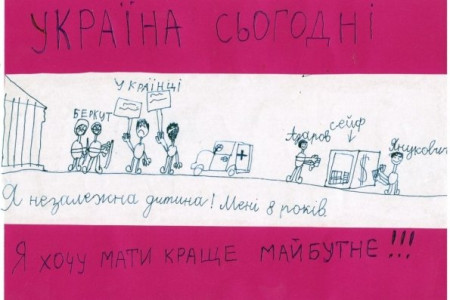 УКРАЇНА СЬОГОДНІ
УКРАЇНЦІ
БЕРКУТ
Азаров
сейф
Янукович
$
Я незалежна дитина! Мені 8 років.
Я ХОЧУ МАТИ КРАЩЕ МАЙБУТНЄ!!!